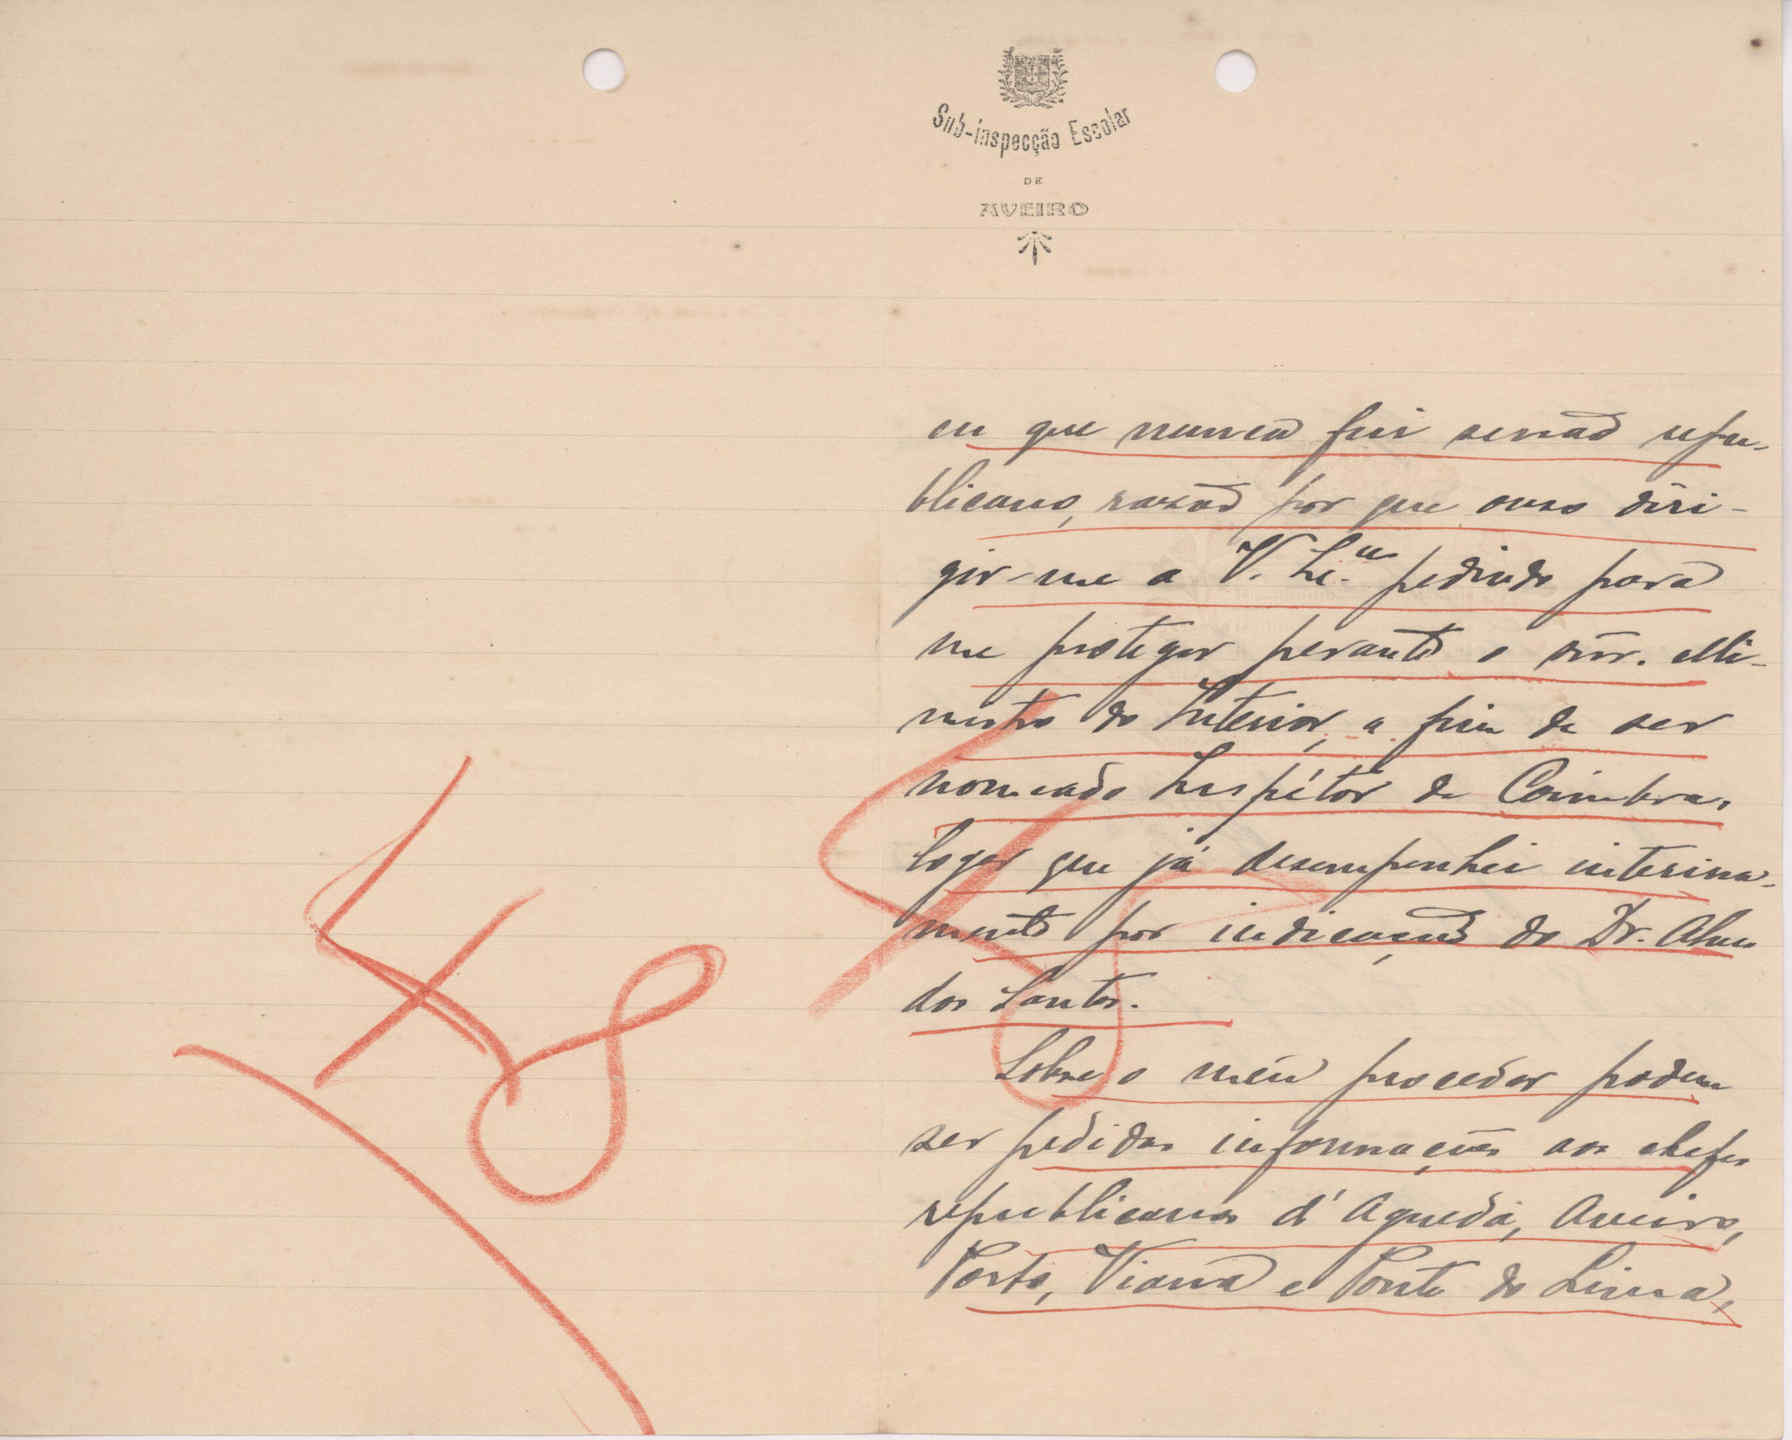 Sub-inspecção Escolar
DE
AVEIRO
eu que nunca fui senão repu-
blicano, rasão por que ouso diri-
gir-me a V. Ex.ª pedindo para
me proteger perante o snr. Mi-
nistro do Interior, a fim de ser
nomeado Inspétor de Coimbra,
logar que já desempenhei interina-
mente por indicação do Dr. Alves
dos Santos.
Sobre o meu proceder podem
ser pedidas informações aos chefes
republicanos d'Agueda, Aveiro,
Porto, Viana e Ponte do Lima,
48